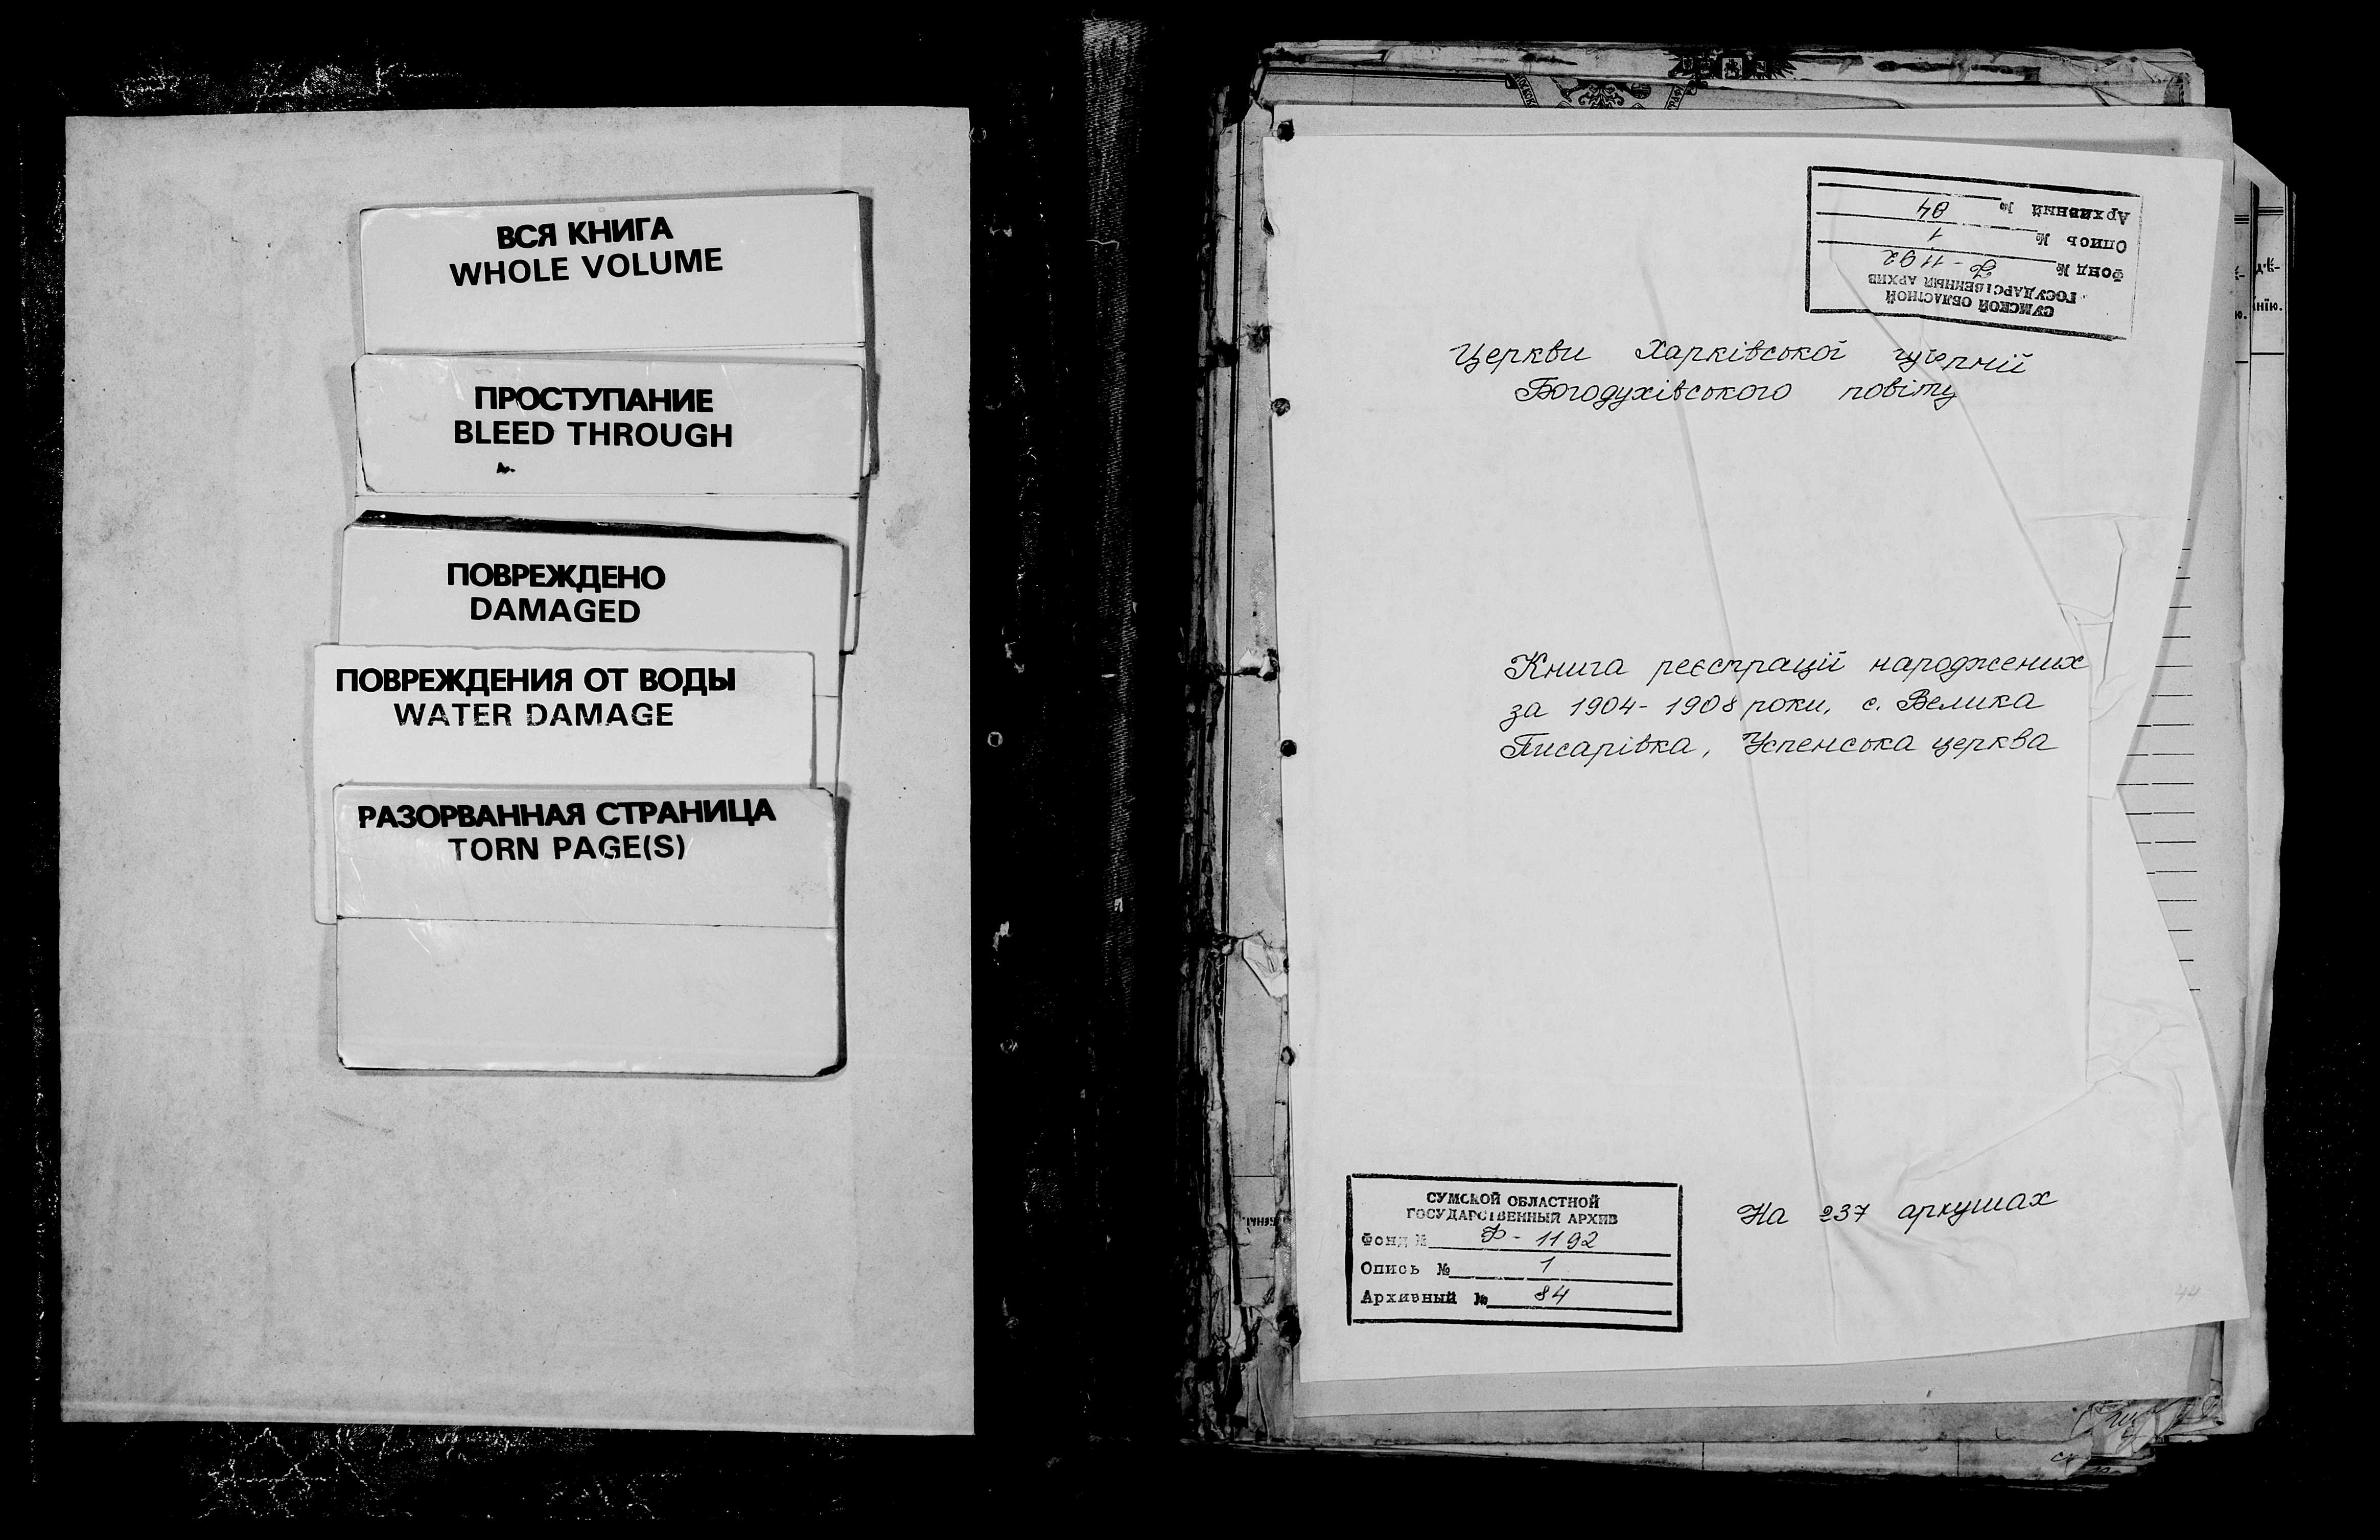 ВСЯ КНИГА
WHOLE VOLUME
ПРОСТУПАНИЕ
BLEED THROUGH
ПОВРЕЖДЕНО
DAMAGED
ПОВРЕЖДЕНИЯ ОТ ВОДЫ
WATER DAMAGE
РАЗОРВАННАЯ СТРАНИЦА
TORN PAGE(S)
СУМСКОЙ ОБЛАСТНОЙ
ГОСУДАРСТВЕННЫЙ АРХИВ
Фонд № Ф-1192
Опись № 1
Архивный № 84
Церкви Харківської губернії
Богодухівського повіту
Книга реєстрації народжених
за 1904-1908 роки, с. Велика
Писарівка, Успенська церква
На 237 аркушах
СУМСКОЙ ОБЛАСТНОЙ
ГОСУДАРСТВЕННЫЙ АРХИВ
Фонд № Ф-1192
Опись № 1
Архивный № 84
44